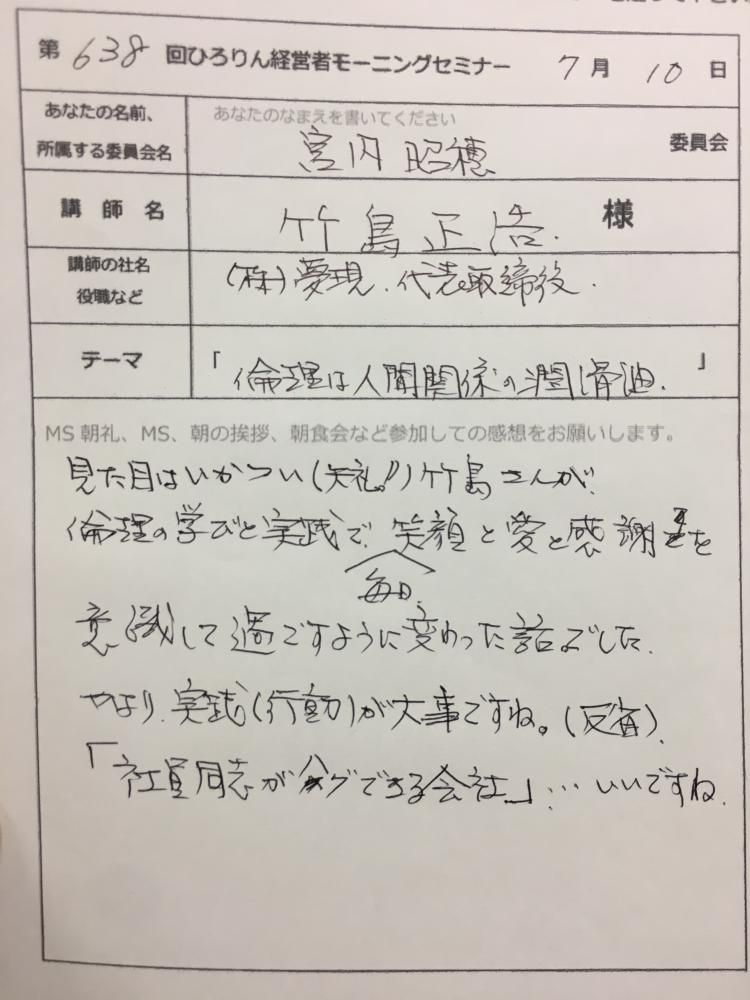 第 638 回ひろりん経営者モーニングセミナー 7 月 10 日
あなたの名前、
所属する委員会名
あなたのなまえを書いてください
宮内 昭穂
委員会
講 師 名
竹島 正浩. 様
講師の社名
役職など
(株)夢現. 代表取締役.
テーマ
「 倫理は人間関係の潤滑油. 」
MS 朝礼、MS、朝の挨拶、朝食会など参加しての感想をお願いします。
見た目はいかつい(失礼!!)竹島さんが.
倫理の学びと実践で. 笑顔と愛と感謝を
毎日.
意識して過ごすように変わった話でした.
やはり. 実践(行動)が大事ですね。(反省).
「社員同志がハグできる会社」…いいですね.